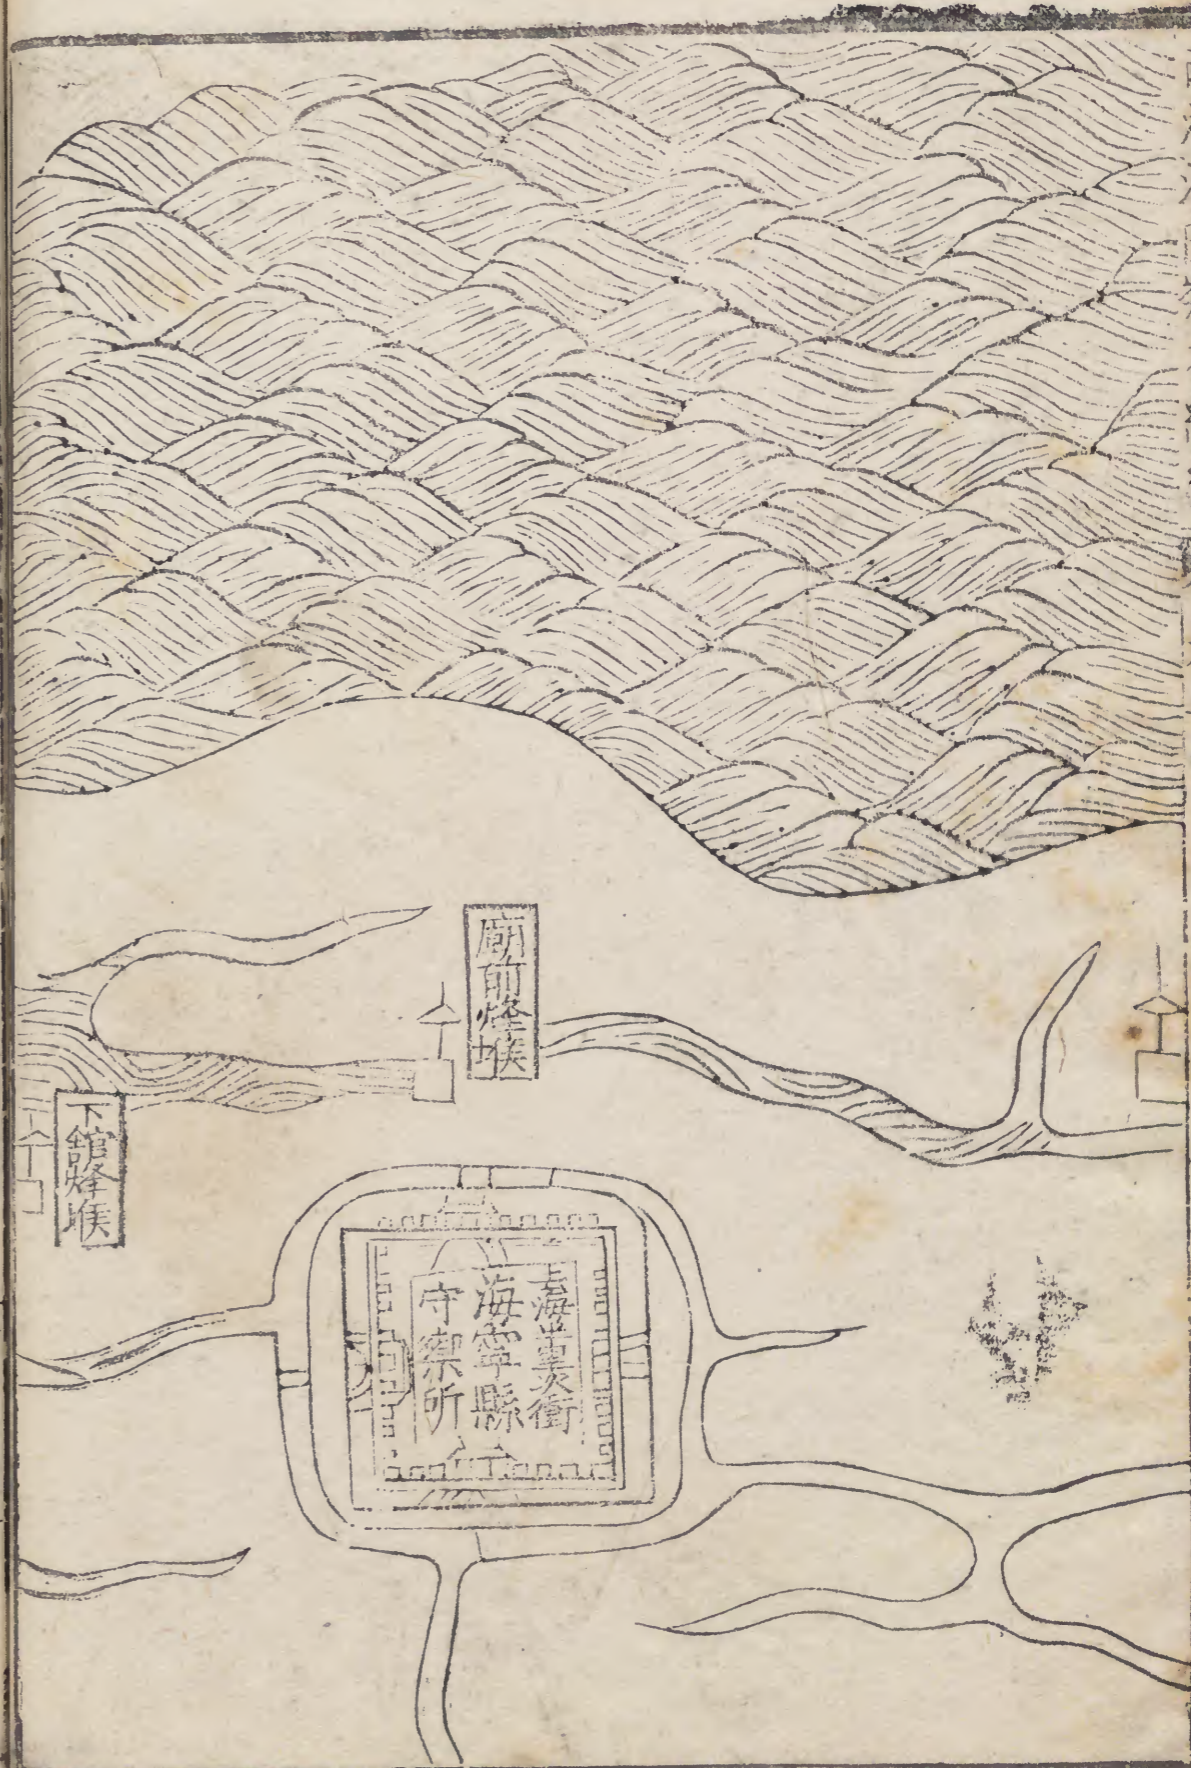 廟前烽堠
下舘烽堠
海寧縣
守禦所